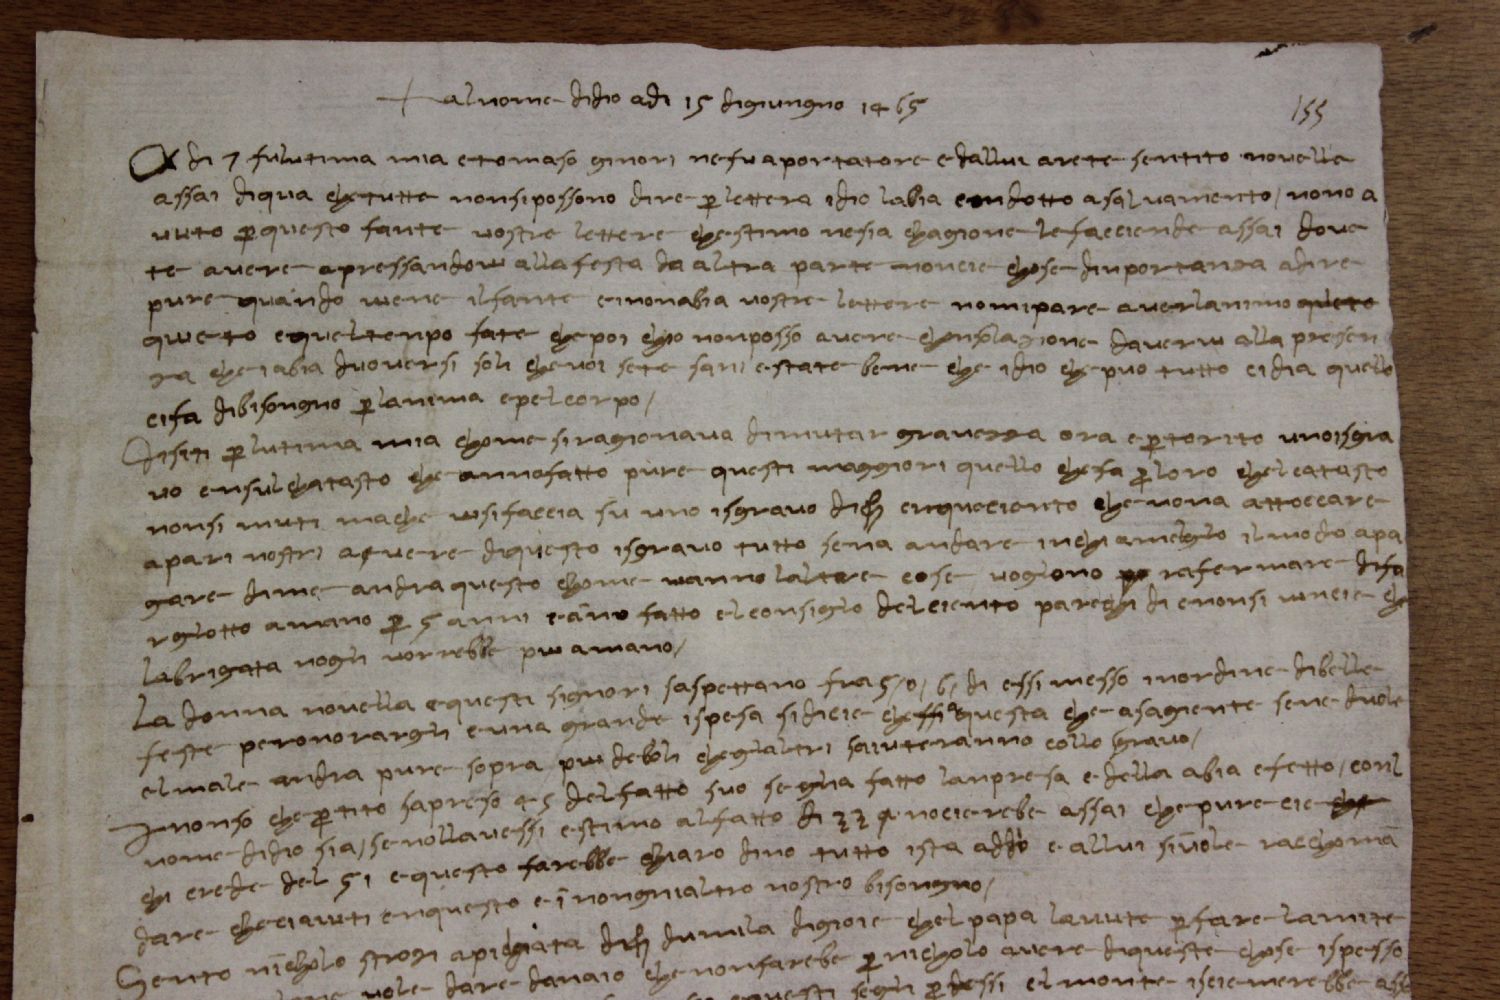 + al nome didio adi 15 digiungno 1465
155
A di 7 fu lutima mia e tomaso ginori ne fu aportatore e dallui arete sentito novelle
assai diqua che tutte nonsi possono dire per lettera idio labia condotto a salvamento / nono a
vuto per questo fante vostre lettere che stimo nesia chagione le facciende assai dove
te avere apressandovi alla festa da altra parte non cie chose dinportanza adire
pure quando viene ilfante e inonabia vostre lettere nomipare averlanimo
queto e quel tenpo fate che poi chio nonposso avere chonsolazione davervi alla presen
za che iabia dvoversi soli che voi sete sani e state bene che idio che puo tutto ci dia quello
ci fa dibisongno per lanima e pel corpo /
Dissiti per lutima mia chome si ragionava dimutar gravezza ora e per torito uno isgra
vo ensulchatasto che annofatto pure questi maggiori quello che fa per loro chel catasto
nonsi muti ma che vi si faccia su uno isgravo di cinqueciento che nona attoccare
apari nostri avere diquesto isgravo tutto sena andare in chi ameglo il modo apa
gare dime andra questo chome vanno laltre cose voglono rafermare difa
rglotto amano per 5 anni e ano fatto el consiglo del ciento parechi di e nonsi vincie che
labrigata nogli vorrebbe piu amano /
La donna novella e questi signori saspettano fra 5 / o / 6 / di e ssi messo inordine dibelle
feste per onorargli e una grande ispesa si dicie questa che asagiente sene dvole
el male andra pure sopra piu deboli che glaltri saiuteranno collo sgravo /
I nonso che per tito sapreso 45 del fatto suo se gla fatto lanpresa e della abia efetto / coril
nome didio sia / se nollavessi estimo al fatto di 33 nocierebe assai che pure cie
chi crede del si e questo farebbe chiaro dino tutto ista addio e allui si vole racchoman
dare che ciaiuti enquesto e inongnialtro nostro bisongno /
Sento nicholo strozi apichiata dumila digioie chel papa lavute per fare lamite
vole dare danaio che nonfarebe per nicholo avere diqueste chose ispesso
questi segli per dessi el monte isciemerebbe